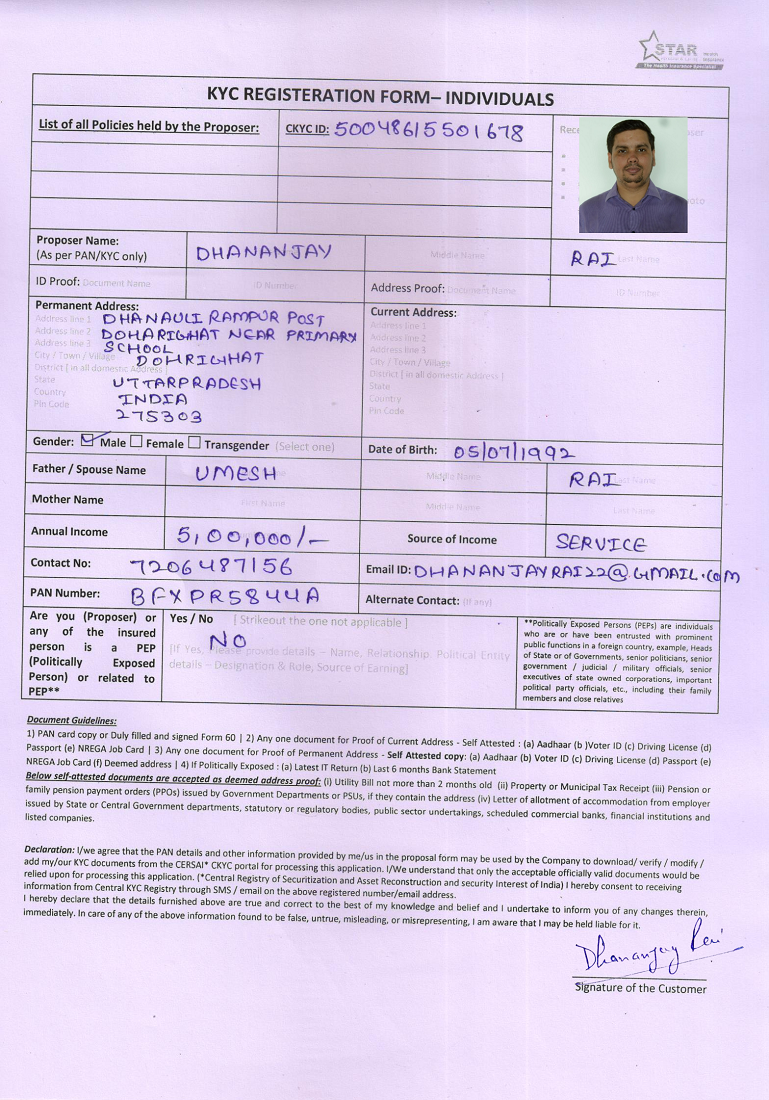 STAR
The Health Insurance Specialist
KYC REGISTERATION FORM– INDIVIDUALS
List of all Policies held by the Proposer:
CKYC ID: 50048615501678
Proposer Name:
(As per PAN/KYC only)
DHANANJAY
Middle Name
RAI
Last Name
ID Proof: Document Name
ID Number
Address Proof: Document Name
ID Number
Permanent Address:
Address line 1 DHANAULI RAMPUR POST
Address line 2 DOHARIGHAT NEAR PRIMARY
Address line 3 SCHOOL
City / Town / Village DOHRIGHAT
District [ in all domestic Address ]
State UTTARPRADESH
Country INDIA
Pin Code 275303
Current Address:
Address line 1
Address line 2
Address line 3
City / Town / Village
District [ in all domestic Address ]
State
Country
Pin Code
Gender: Male Female Transgender (Select one)
Date of Birth: 05/07/1992
Father / Spouse Name
UMESH
Middle Name
RAI
Last Name
Mother Name
First Name
Middle Name
Last Name
Annual Income
5,00,000/-
Source of Income
SERVICE
Contact No:
7206487156
Email ID: DHANANJAYRAI22@GMAIL.COM
PAN Number:
BFXPR5844A
Alternate Contact: (If any)
Are you (Proposer) or
any of the insured
person is a PEP
(Politically Exposed
Person) or related to
PEP**
Yes / No [ Strikeout the one not applicable ]
NO
[If Yes, Please provide details – Name, Relationship, Political Entity
details – Designation & Role, Source of Earning]
**Politically Exposed Persons (PEPs) are individuals
who are or have been entrusted with prominent
public functions in a foreign country, example, Heads
of State or of Governments, senior politicians, senior
government / judicial / military officials, senior
executives of state owned corporations, important
political party officials, etc., including their family
members and close relatives
Document Guidelines:
1) PAN card copy or Duly filled and signed Form 60 | 2) Any one document for Proof of Current Address - Self Attested : (a) Aadhaar (b )Voter ID (c) Driving License (d)
Passport (e) NREGA Job Card | 3) Any one document for Proof of Permanent Address - Self Attested copy: (a) Aadhaar (b) Voter ID (c) Driving License (d) Passport (e)
NREGA Job Card (f) Deemed address | 4) If Politically Exposed : (a) Latest IT Return (b) Last 6 months Bank Statement
Below self-attested documents are accepted as deemed address proof: (i) Utility Bill not more than 2 months old (ii) Property or Municipal Tax Receipt (iii) Pension or
family pension payment orders (PPOs) issued by Government Departments or PSUs, if they contain the address (iv) Letter of allotment of accommodation from employer
issued by State or Central Government departments, statutory or regulatory bodies, public sector undertakings, scheduled commercial banks, financial institutions and
listed companies.
Declaration: I/we agree that the PAN details and other information provided by me/us in the proposal form may be used by the Company to download/ verify / modify /
add my/our KYC documents from the CERSAI* CKYC portal for processing this application. I/We understand that only the acceptable officially valid documents would be
relied upon for processing this application. (*Central Registry of Securitization and Asset Reconstruction and security Interest of India) I hereby consent to receiving
information from Central KYC Registry through SMS / email on the above registered number/email address.
I hereby declare that the details furnished above are true and correct to the best of my knowledge and belief and I undertake to inform you of any changes therein,
immediately. In care of any of the above information found to be false, untrue, misleading, or misrepresenting, I am aware that I may be held liable for it.
Dhananjay Rai
Signature of the Customer